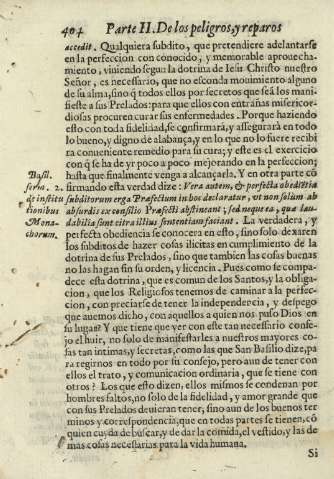 404 Parte II. De los peligros, y reparos
accedit. Qualquiera subdito, que pretendiere adelantarse
en la perfeccion con conocido, y memorable aprouecha-
miento, viuiendo segun la dotrina de Iesu Christo nuestro
Señor, es necessario, que no esconda mouimiento alguno
de su alma, sino q̃ todos ellos por secretos que seã los mani-
fieste a sus Prelados: para que ellos con entrañas misericor-
diosas procuren curar sus enfermedades. Porque haziendo
esto con toda fidelidad, se confirmará, y assegurará en todo
lo bueno, y digno de alabança, y en lo que no lo fuere recibi
ra conueniente remedio para su cura; y este es el exercicio
con q̃ se ha de yr poco a poco mejorando en la perfeccion;
hasta que finalmente venga a alcançarla. Y en otra parte cõ
firmando esta verdad dize: Vera autem, & perfecta obediẽtia
subditorum erga Præfectum in hoc declaratur, vt non solum ab
absurdis ex consilio Præfecti abstineant, sed ne quea, quæ lau-
dabilia sunt citra illius sententiam faciant. La verdadera, y
perfecta obediencia se conocera en esto, si no solo dexaren
los subditos de hazer cosas ilicitas en cumplimiento de la
dotrina de sus Prelados, sino que tambien las cosas buenas
no las hagan sin su orden, y licencia. Pues como se compa-
dece esta dotrina, que es comun de los Santos, y la obliga-
cion, que los Religiosos tenemos de caminar a la perfec-
cion, con preciarse de tener la independencia, y despego
que auemos dicho, con aquellos a quien nos puso Dios en
su lugar? Y que tiene que ver con este tan necessario conse-
jo el huir, no solo de manifestarles a nuestros mayores co-
sas tan intimas, y secretas, como las que San Basilio dize, pa
ra regirnos en todo por su consejo, pero aun de tener con
ellos el trato, y comunicacion ordinaria, que se tiene con
otros? Los que esto dizen, ellos mismos se condenan por
hombres faltos, no solo de la fidelidad, y amor grande que
con sus Prelados deuieran tener, sino aun de los buenos ter
minos y correspondencia, que en todas partes se tienen, cõ
quien cuyda de buscar, y de dar la comida, el vestido, y las de
mas cosas necessarias para la vida humana.
Si
Basil.
serm. 2.
de institu
tionibus
Mona-
chorum.